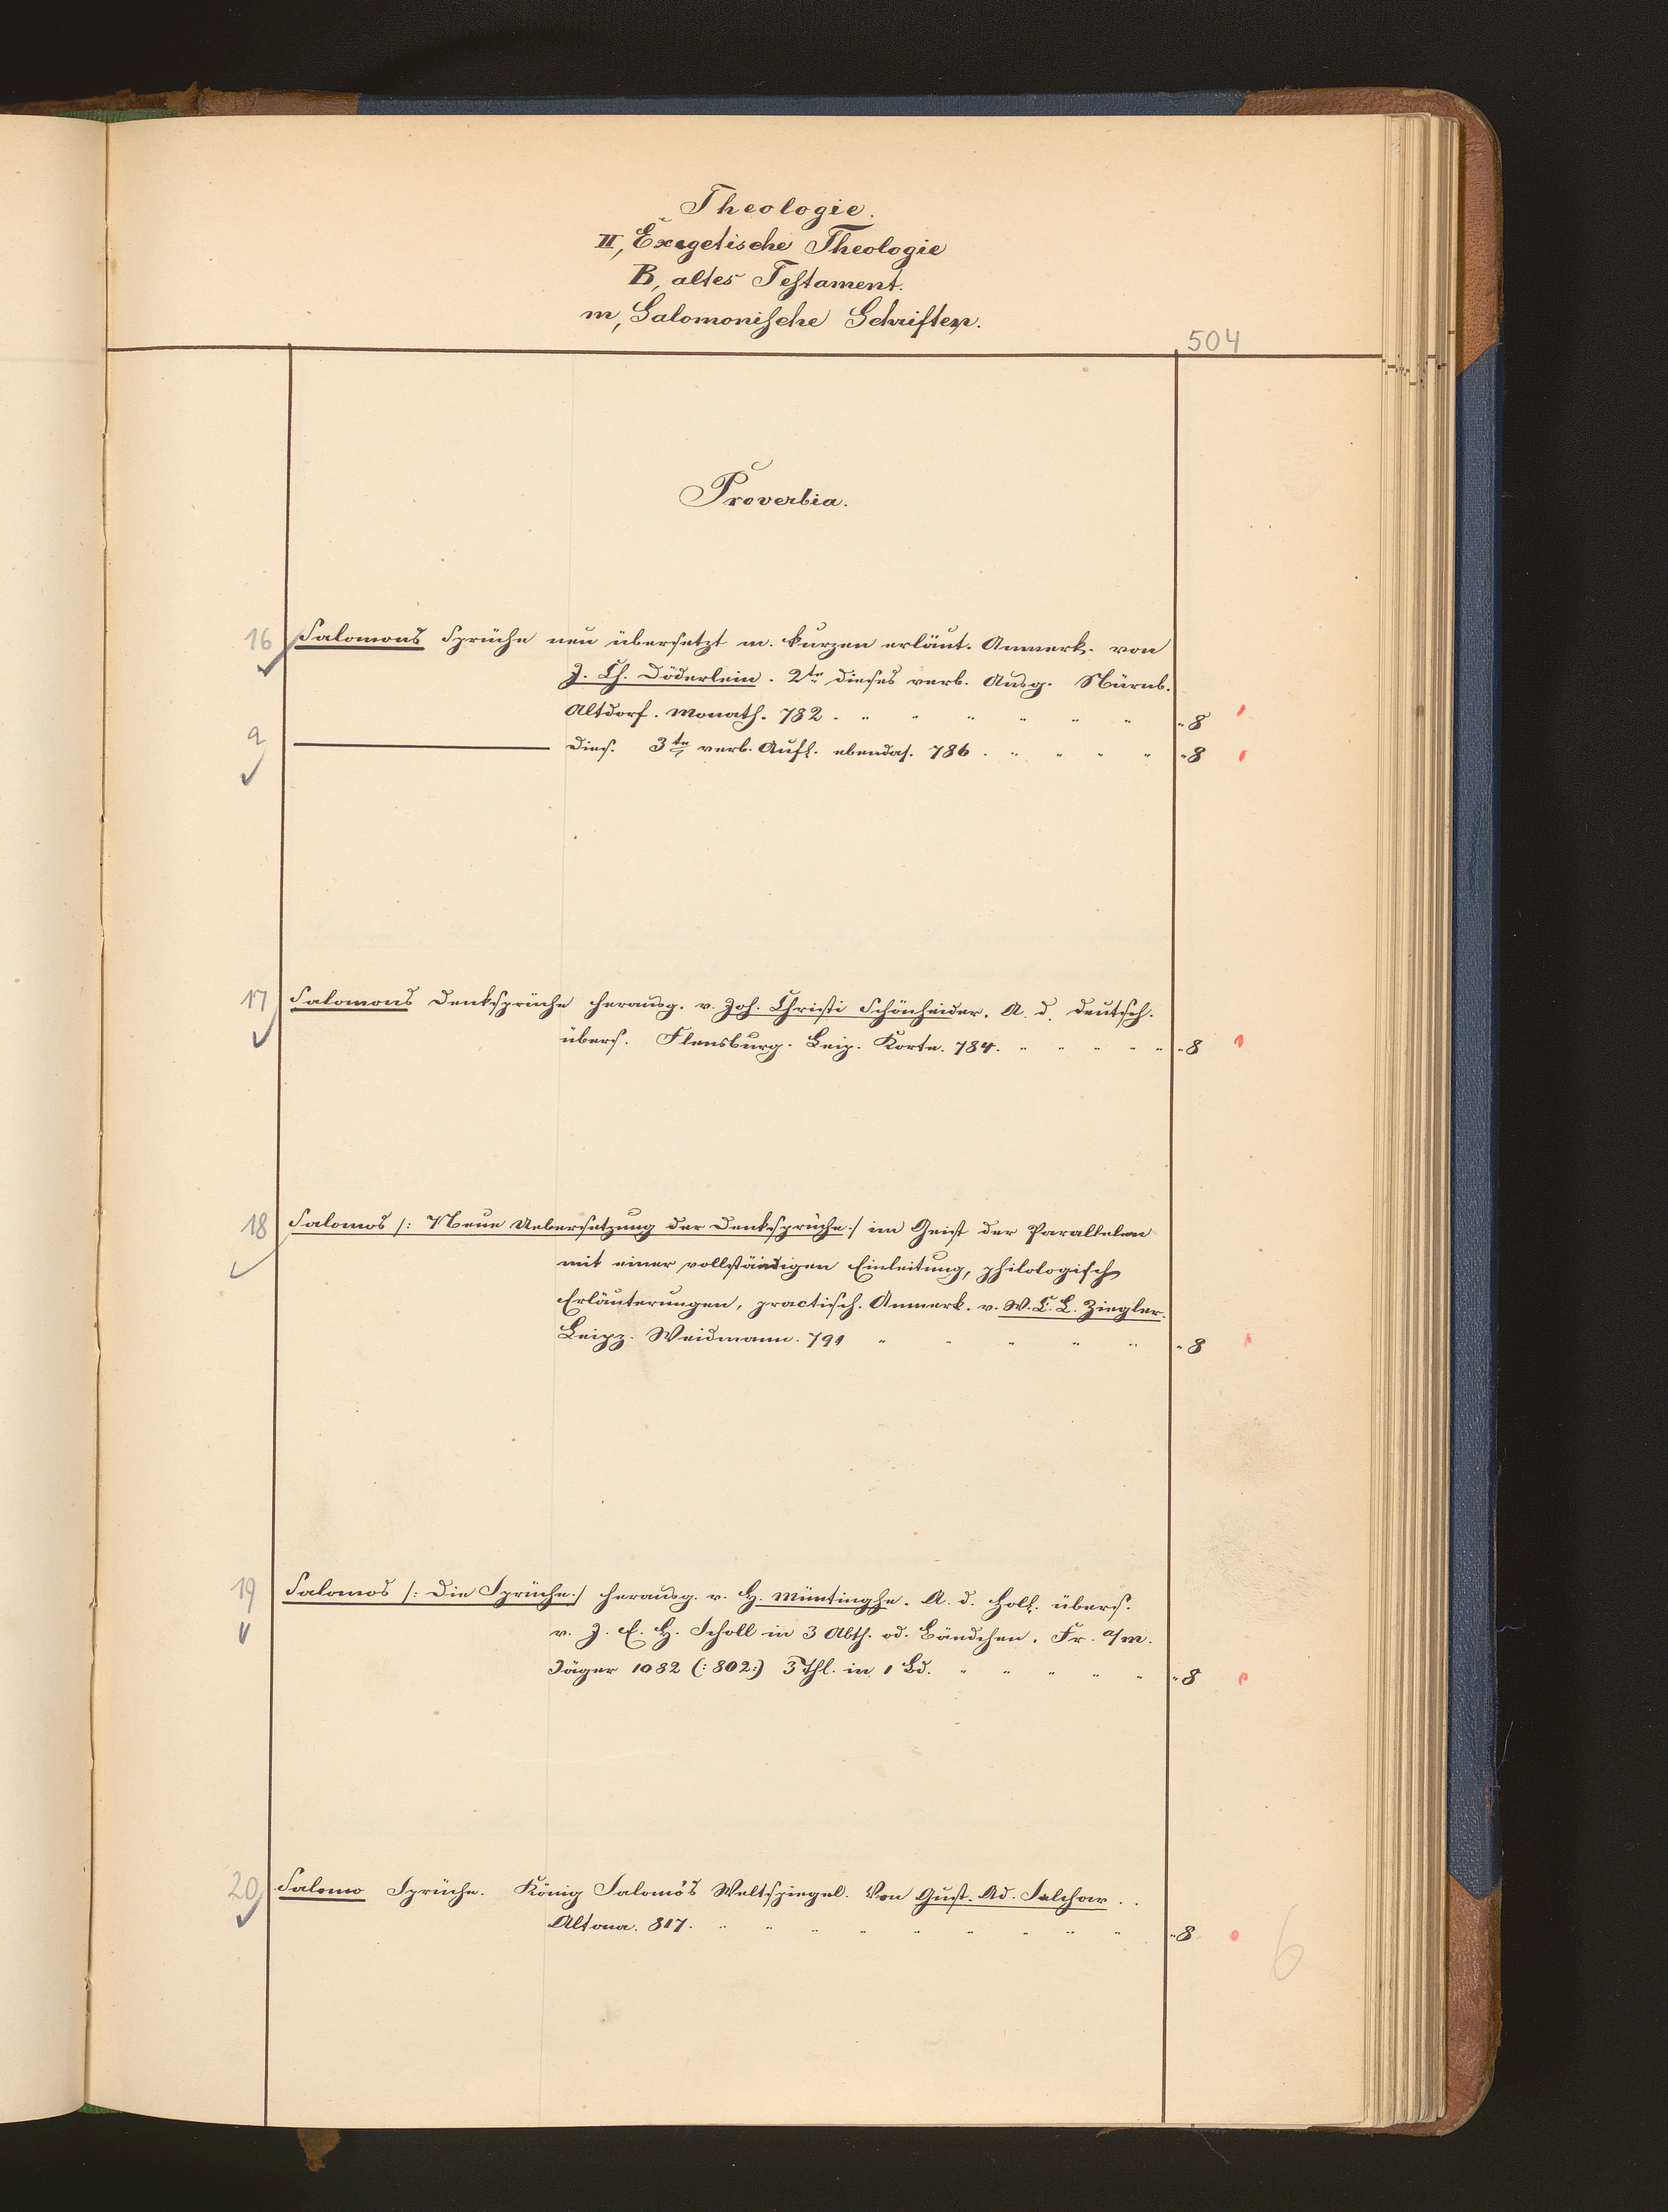 Theologie.
II, Exegetische Theologie
B, altes Testament.
m, Salomonische Schriften.
504
Proverbia.
16 Salomons Sprüche neu übersetzt m. kurzen erläut. Anmerk. von
J. Ch. Döderlein. 2te dieses verb. Ausg. Nürnb.
Altdorf. Monath. 782. " " " " " " " 8
a dies. 3te verb. Aufl. ebendas. 786. " " " " " 8
17 Salomons Denksprüche herausg. v. Joh. Christi Schönheider. A. d. deutsch.
übers. Flensburg. Leip. Korte. 784. " " " " " " 8
18 Salomos /: Neue Uebersetzung der Denksprüche :/ im Geist der Parallelen
mit einer vollständigen Einleitung, philologisch
Erläuterungen, practisch. Anmerk. v. W. C. L. Ziegler.
Leipz. Weidmann. 791 " " " " " " 8
19 Salomos /: Die Sprüche :/ herausg. v. H. Müntinghe. A. d. Holl. übers.
v. J. E. H. Scholl in 3 Abth. od. Bändchen. Fr. a/m.
Jäger 1082 (: 802 :) 3 Thl. in 1 Bd. " " " " " " 8
20 Salomo Sprüche. König Salomo's Weltspiegel. Von Gust. Ad. Salchow.
Altona. 817. " " " " " " " " " " 8
6